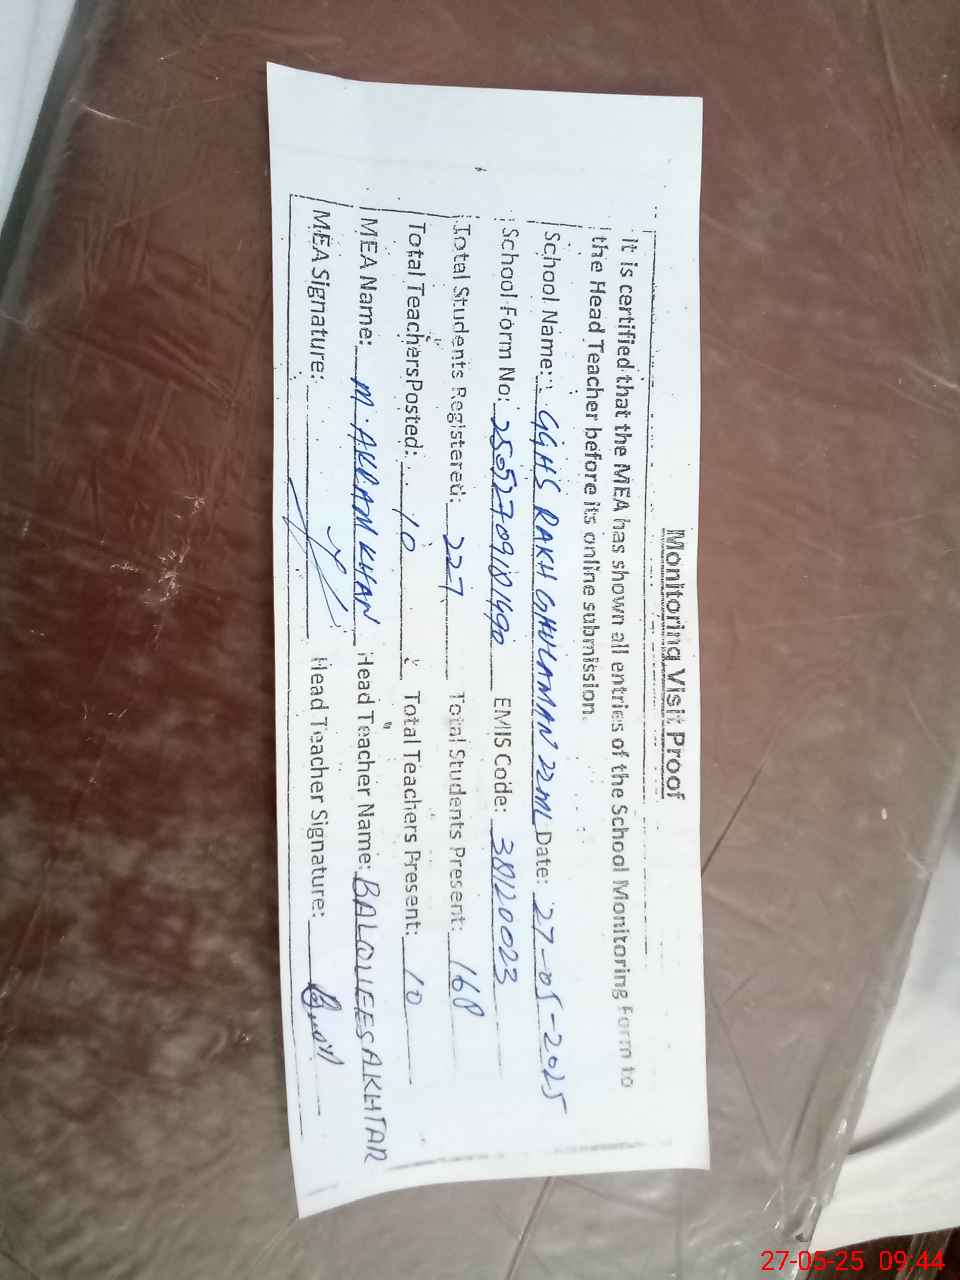 Monitoring Visit Proof
It is certified that the MEA has shown all entries of the School Monitoring Form to
the Head Teacher before its online submission.
School Name: GGHS RAKH GHULAMAN 22ML Date: 27-05-2025
School Form No: EMIS Code: 38120023
Total Students Registered: 227 Total Students Present: 168
Total Teachers Posted: 10 Total Teachers Present: 10
MEA Name: M. AKRAM KHAN Head Teacher Name: BALQUEES AKHTAR
MEA Signature: Head Teacher Signature:
27-05-25 09:44